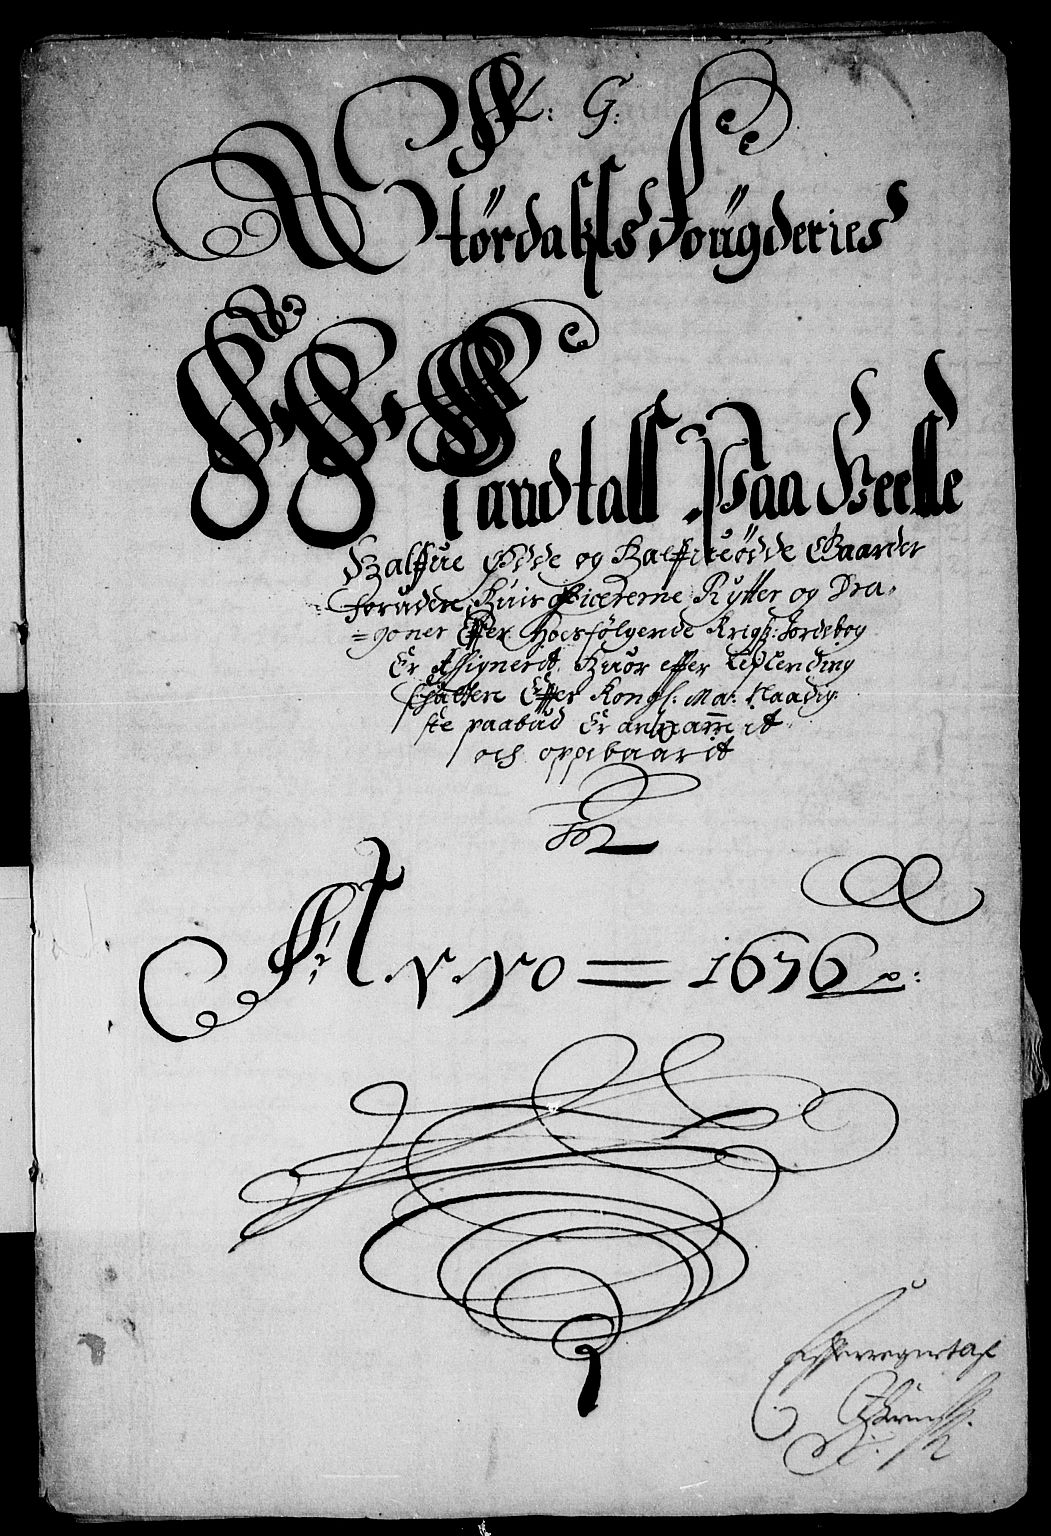 L: G:
Størdahls Fougderies
Mandtall Paa Heelle
Halffue Øde og Halffueødde Gaarder
foruden Huis officererne Rytter og Dra,
=goner Effter Hosfølgende Krigs: Jordebog
Er Assignerit. Huor effter
schatten Effter Kongl: Ma: Naadig
ste paabud Er annammit
och oppebaarit
for
Anno = 1656